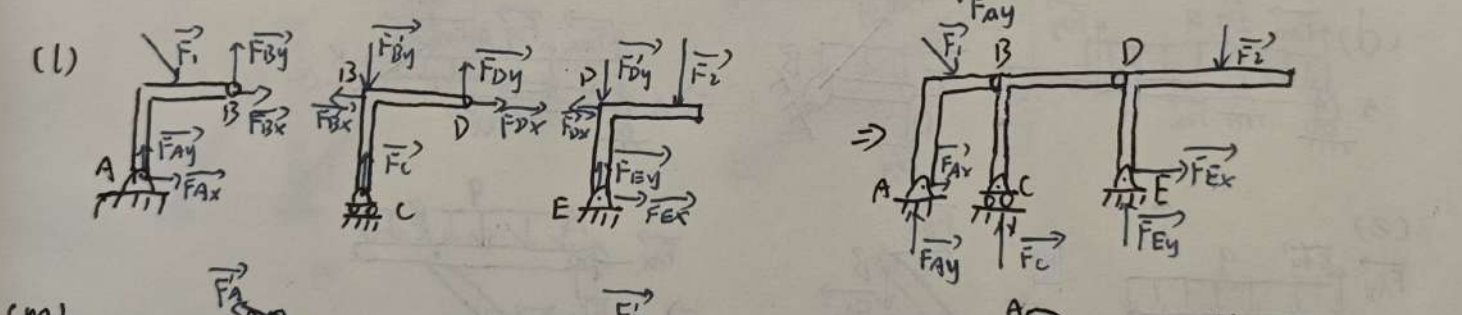 F⃗Ay
(l)
F⃗1 F⃗By B F⃗Bx A F⃗Ay F⃗Ax
F⃗'By B F⃗'Bx F⃗Dy D F⃗Dx F⃗c C
D F⃗'Dy F⃗2 F⃗'Dx F⃗Ey E F⃗Ex
⇒ F⃗1 B D F⃗2
A F⃗Ax C E F⃗Ex
F⃗Ay F⃗c F⃗Ey
F⃗'A
A